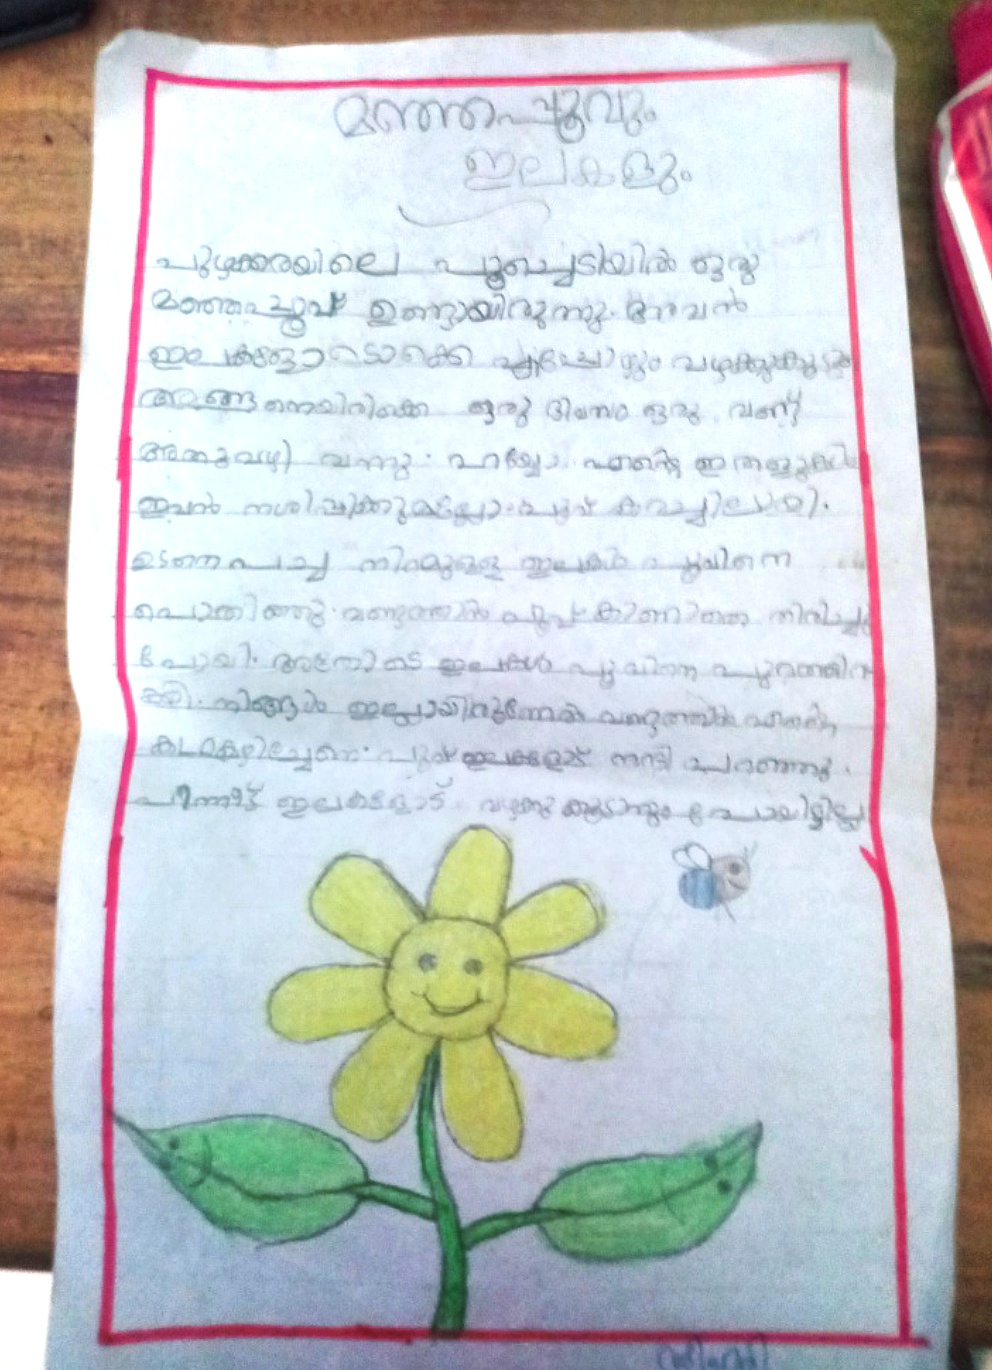 മഞ്ഞപ്പൂവും
ഇലകളും
പുഴക്കരയിലെ പൂച്ചെടിയിൽ ഒരു
മഞ്ഞപ്പൂവ് ഉണ്ടായിരുന്നു. അവൻ
ഇലകളോടൊക്കെ എപ്പോഴും വഴക്കുകൂടും
അങ്ങനെയിരിക്കെ ഒരു ദിവസം ഒരു വണ്ട്
അതുവഴി വന്നു. ഹയ്യോ. എന്റെ ഇതളുകൾ
ഇവൻ നശിപ്പിക്കുമല്ലോ. പൂവ് കരച്ചിലായി.
ഉടനെ പച്ച നിറമുള്ള ഇലകൾ പൂവിനെ
പൊതിഞ്ഞു. വണ്ടത്താൻ പൂവ് കാണാതെ തിരിച്ചു
പോയി. അതോടെ ഇലകൾ പൂവിനെ
നിങ്ങൾ ഇല്ലായിരുന്നേൽ വണ്ടത്താൻ എന്റെ
കഥകഴിച്ചേനെ. പൂവ് ഇലകളോട് നന്ദി പറഞ്ഞു.
പിന്നീട് ഇലകളോട് വഴക്കു കൂടാനും പോയിട്ടില്ല